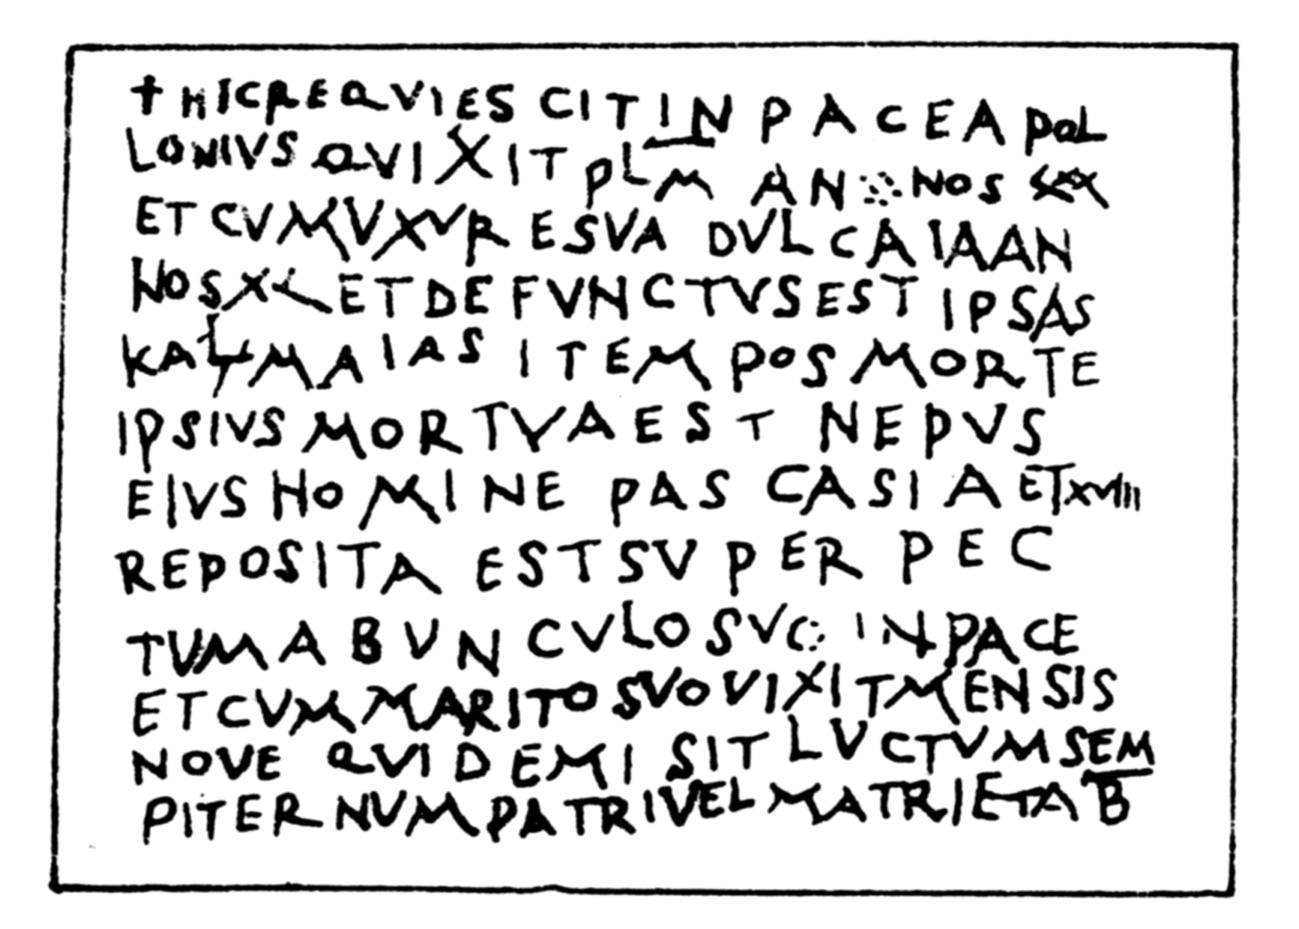 † HIC REQVIESCIT IN PACE APOL
LONIVS QVI VIXIT PLM AN NOS XXX
ET CVM VXVRE SVA DVLCA IA AN
NOS XL ET DEFVNCTVS EST IPSAS
KAL MAIAS ITEM POS MORTE
IPSIVS MORTVA EST NEPVS
EIVS HOMINE PASCASIA ET XVIII
REPOSITA EST SVPER PEC
TVM ABVNCVLO SVO IN PACE
ET CVM MARITO SVO VIXIT MENSIS
NOVE QVI DEMISIT LVCTVM SEM
PITERNVM PATRI VEL MATRI ET AB